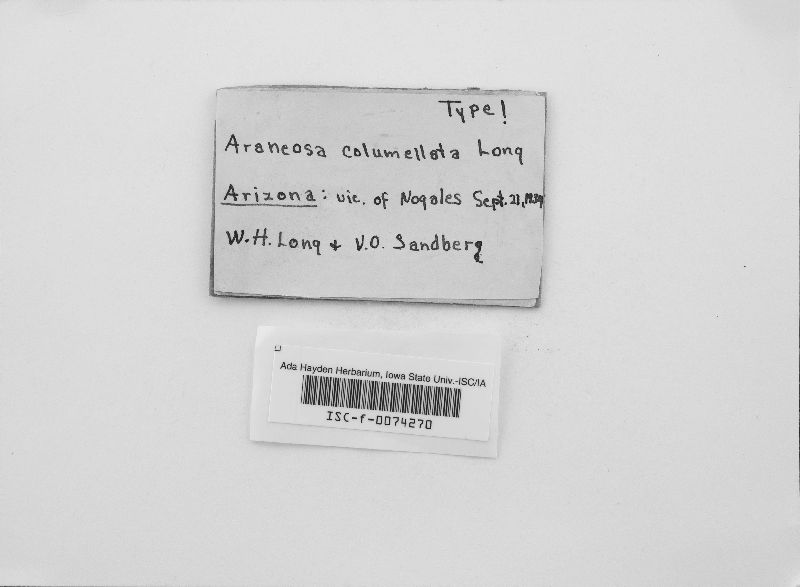 Type!
Araneosa columellata Long
Arizona: vic. of Nogales Sept. 21, 1939
W.H. Long + V.O. Sandberg
Ada Hayden Herbarium, Iowa State Univ.-ISC/IA
ISC-f-0074270